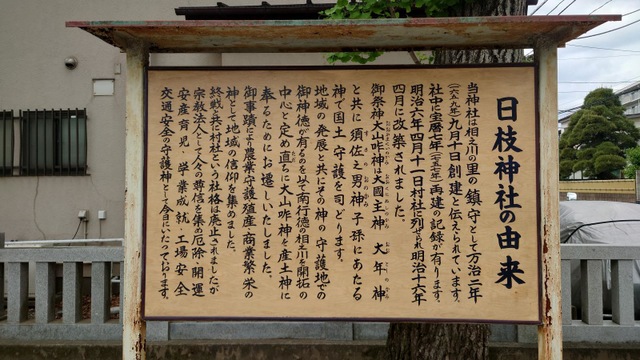 日枝神社の由来
当神社は相之川の里の鎮守として万治二年
(一六五九年)九月十日創建と伝えられています。
社中に宝暦七年(一七五七年)再建の記録が有ります。
明治六年四月十一日村社に列せられ明治十六年
四月に改築されました。
御祭神大山咋神は大國主神 大年神
と共に須佐之男神子孫にあたる
神で国土守護を司どります。
地域の発展と共にその神の守護地での
御神徳が有るのを以て南行徳の相之川を開拓の
中心と定め直ちに大山咋神を産土神に
奉るためにお遷しいたしました。
御事蹟により農業守護殖産商業繁栄の
神として地域の信仰を集めました。
終戦と共に村社という社格は廃止されましたが
宗教法人として人々の尊信を集め厄除 開運
安産育児 学業成就 工場安全
交通安全の守護神として今日にいたっております。